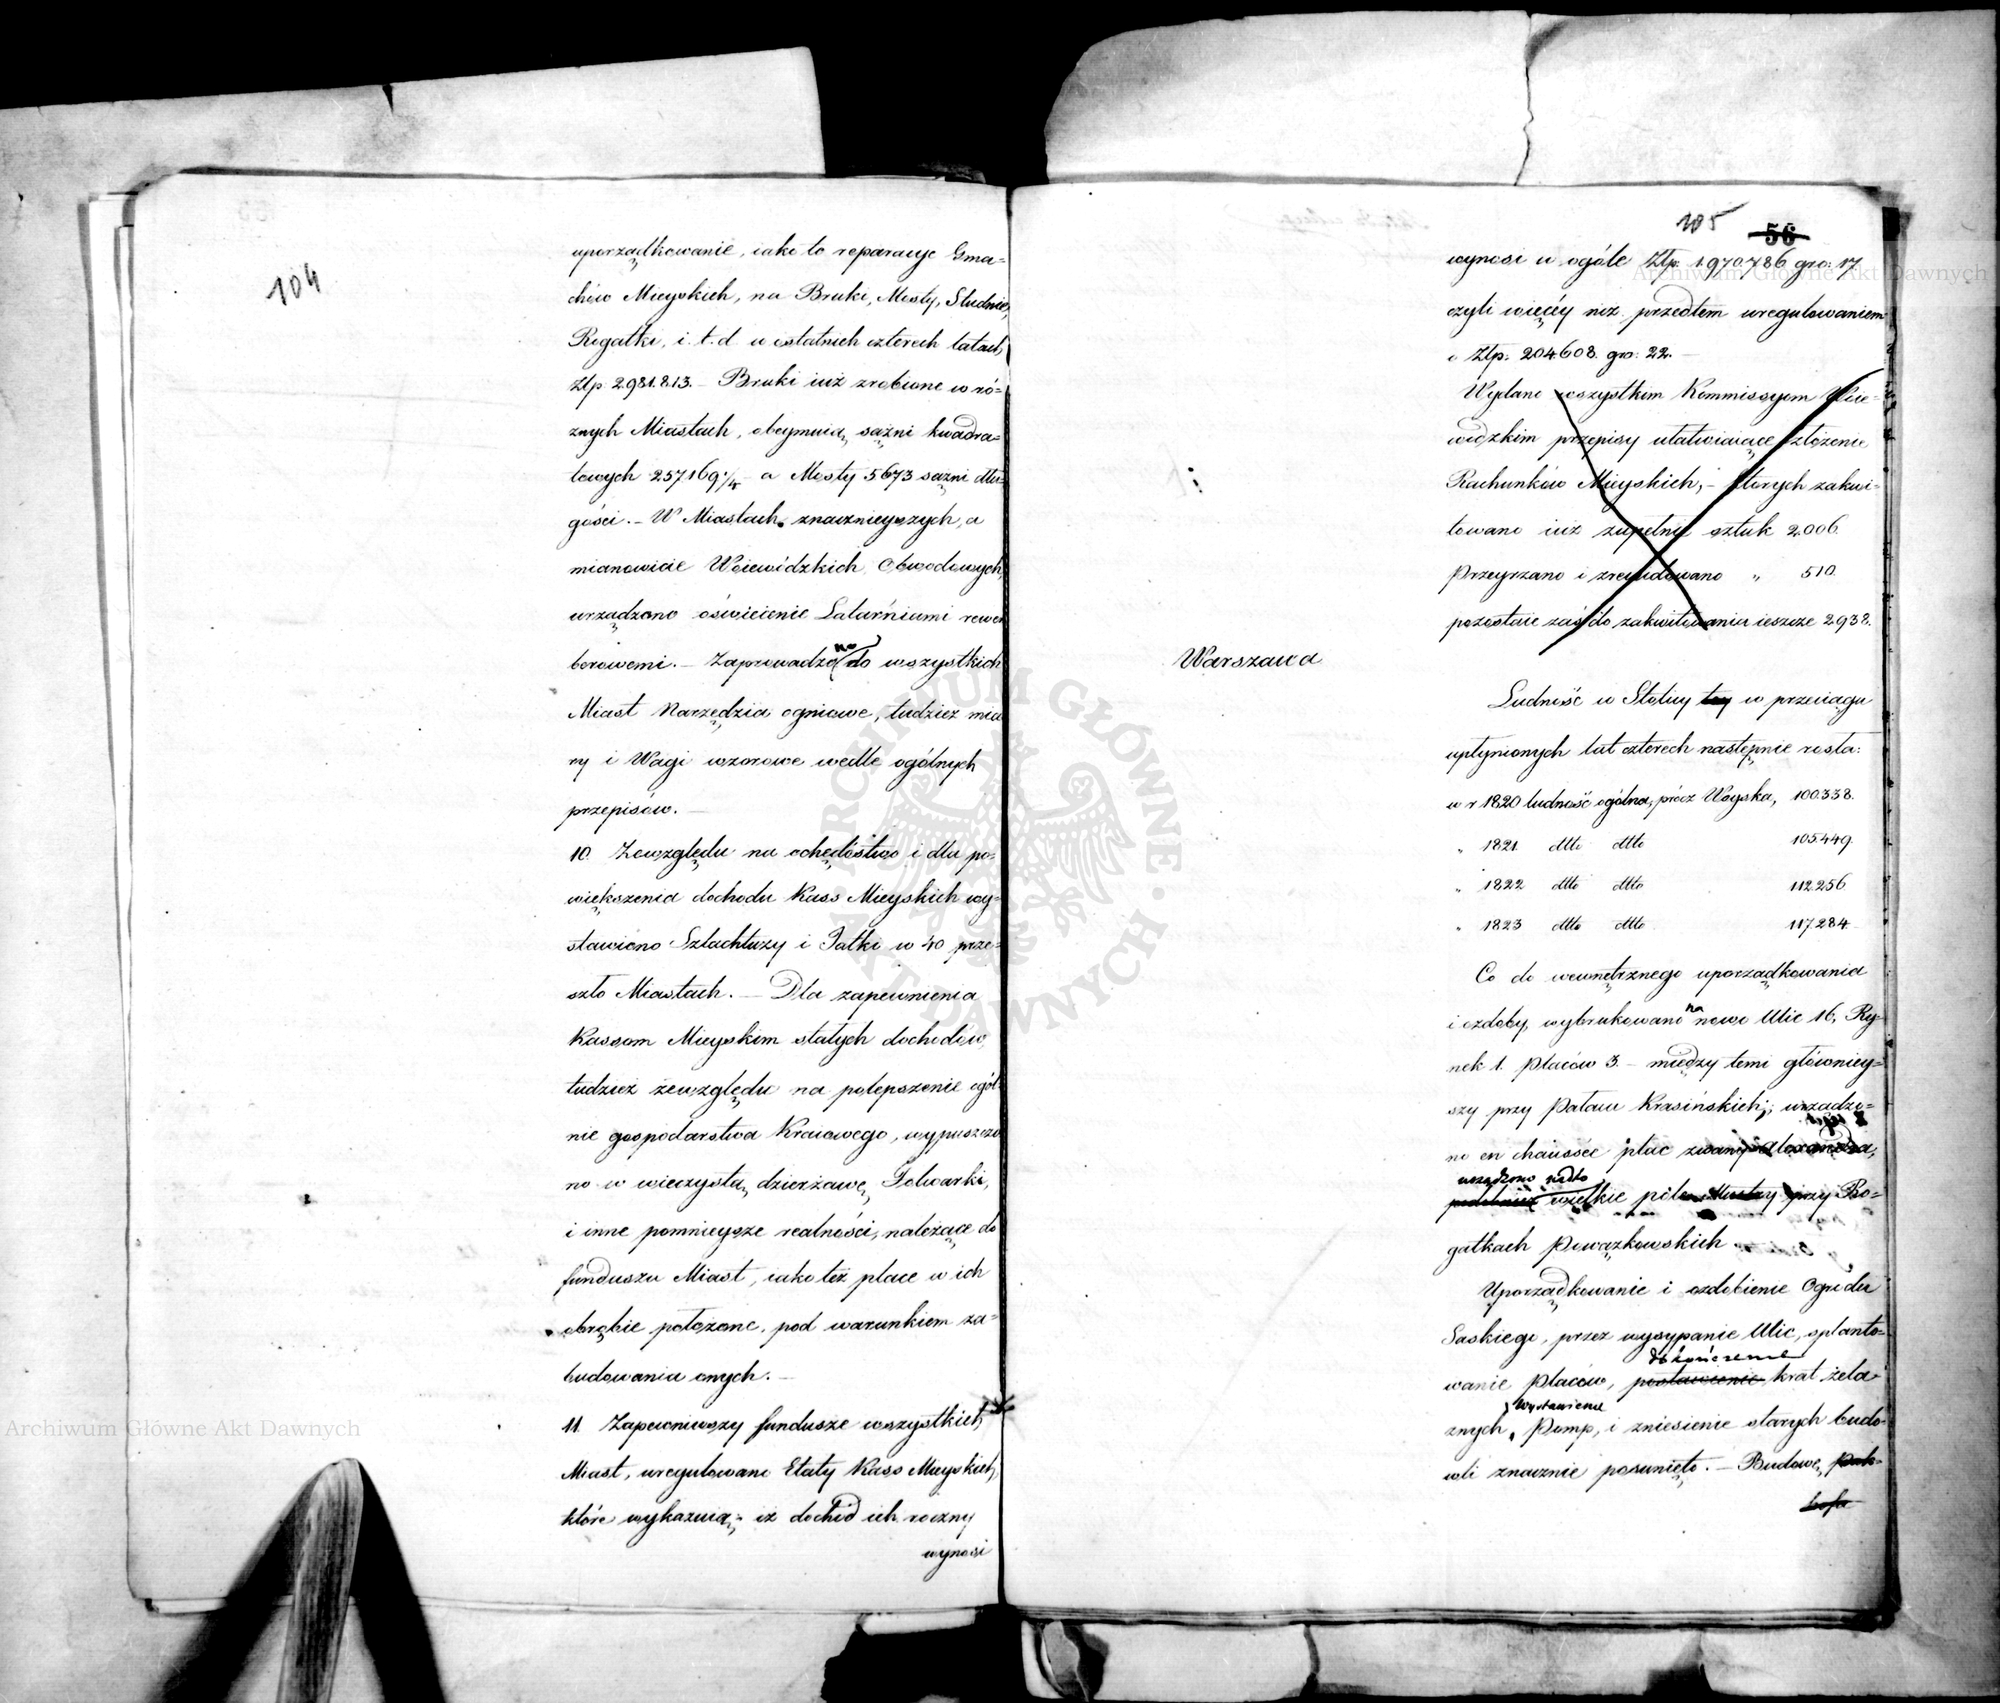 104
uporządkowanie, iako to reparacye Gma=
chów Mieyskich, na Bruki, Mosty, Studnie,
Rogatki, i. t. d w ostatnich czterech latach
Złp. 2.981.813. – Bruki iuż zrobione w ró=
żnych Miastach, obeymuią sążni kwadra=
towych 257169 1/4 a Mosty 5673 sążni dłu=
gości. – W Miastach znacznieyszych, a
mianowicie Woiewódzkich Obwodowych,
urządzono oświecenie Latarniami rewer
berowemi. – Zaprowadzono do wszystkich
Miast Narzędzia ogniowe, tudzież mia
ry i Wagi wzorowe wedle ogólnych
przepisów. –
10. Zewzględu na ochędóstwo i dla po=
większenia dochodu Kass Mieyskich wy=
stawiono Szlachtuzy i Jatki w 40 prze=
szło Miastach. – Dla zapewnienia
Kassom Mieyskim stałych dochodów,
tudzież zewzględu na polepszenie ogól=
nie gospodarstwa Kraiowego, wypuszczo
no w wieczystą dzierżawę Folwarki,
i inne pomnieysze realności, należące do
funduszu Miast, iako też place w ich
obrębie położone, pod warunkiem za=
budowania onych. –
11. Zapewniwszy fundusze wszystkich
Miast, uregulowano Etaty Kass Mieyskich,
które wykazuią, iż dochód ich roczny
wynosi
105
56
wynosi w ogóle Złp. 1.970.786 gro: 17
czyli więcéy niż przedtem uregulowaniem
o Złp. 204608. gro: 22. –
Wydano wszystkim Kommissyom Woie=
wódzkim przepisy ułatwiaiące złożenie
Rachunków Mieyskich; – których zakwi=
towano iuż zupełnie sztuk 2.006.
Przeyrzano i zrewidowano „ 510.
pozostaie zaś do zakwitowania ieszcze 2.938.
Warszawa
Ludność w Stolicy tey w przeciągu
upłynionych lat czterech następnie rosła:
w r 1820 ludność ogólna, prócz Woyska, 100.338.
„ 1821 dtto dtto 105.449.
„ 1822 dtto dtto 112.256
„ 1823 dtto dtto 117.284
Co do wewnętrznego uporządkowania
i ozdoby, wybrukowano na nowo Ulic 16, Ry=
nek 1. Placów 3. – między temi główniey=
szy przy Pałacu Krasińskich; urządzo=
no en chaussée plac zwany Alexandra,
urządzono nadto
wielkie pole Mustry przy Ro=
gatkach Powązkowskich
Uporządkowanie i ozdobienie Ogrodu
Saskiego, przez wysypanie Ulic, splanto=
dokończenie
wanie placów, postawienie krat żela=
Wystawienie
znych, Pomp, i zniesienie starych budo=
wli znacznie posunięto. – Budowę
Archiwum Główne Akt Dawnych
Archiwum Główne Akt Dawnych
ARCHIWUM GŁÓWNE AKT DAWNYCH